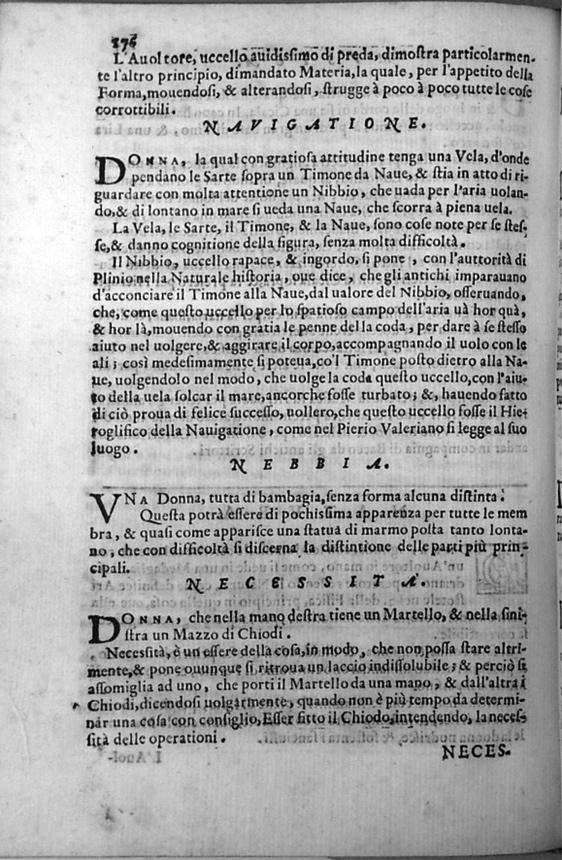 276
L'Auoltore, uccello auidissimo di preda, dimostra particolarmen-
te l'altro principio, dimandato Materia, la quale, per l'appetito della
Forma, mouendosi, & alterandosi, strugge à poco à poco tutte le cose
corrottibili.
NAVIGATIONE.
DONNA, la qual con gratiosa attitudine tenga una Vela, d'onde
pendano le Sarte sopra un Timone da Naue, & stia in atto di ri-
guardare con molta attentione un Nibbio, che uada per l'aria uolan-
do, & di lontano in mare si ueda una Naue, che scorra à piena uela.
La Vela, le Sarte, il Timone, & la Naue, sono cose note per se stes-
se, & danno cognitione della figura, senza molta difficoltà.
Il Nibbio, uccello rapace, & ingordo, si pone, con l'auttorità di
Plinio nella Naturale historia, oue dice, che gli antichi imparauano
d'acconciare il Timone alla Naue, dal ualore del Nibbio, osseruando,
che, come questo uccello per lo spatioso campo dell'aria uà hor quà,
& hor là, mouendo con gratia le penne del la coda, per dare à se stesso
aiuto nel uolgere, & aggirare il corpo, accompagnando il uolo con le
ali; così medesimamente si poteua, co'l Timone posto dietro alla Na-
ue, uolgendolo nel modo, che uolge la coda questo uccello, con l'aiu-
to della uela solcar il mare, ancorche fosse turbato; &, hauendo fatto
di ciò proua di felice successo, uollero, che questo uccello fosse il Hie-
roglifico della Nauigatione, come nel Pierio Valeriano si legge al suo
luogo.
NEBBIA.
VNA Donna, tutta di bambagia, senza forma alcuna distinta.
Questa potrà essere di pochissima apparenza per tutte le mem
bra, & quasi come apparisce una statua di marmo posta tanto lonta-
no, che con difficoltà si discerna la distintione delle parti più prin-
cipali.
NECESSITÀ.
DONNA, che nella mano destra tiene un Martello, & nella sini-
stra un Mazzo di Chiodi.
Necessità, è un essere della cosa, in modo, che non possa stare altri-
mente, & pone ouunque si ritroua un laccio indissolubile; & perciò si
assomiglia ad uno, che porti il Martello da una mano, & dall'altra i
Chiodi, dicendosi uolgarmente, quando non è più tempo da determi-
nar una cosa con consiglio, Esser fitto il Chiodo, intendendo, la neces-
sità delle operationi.
NECES-